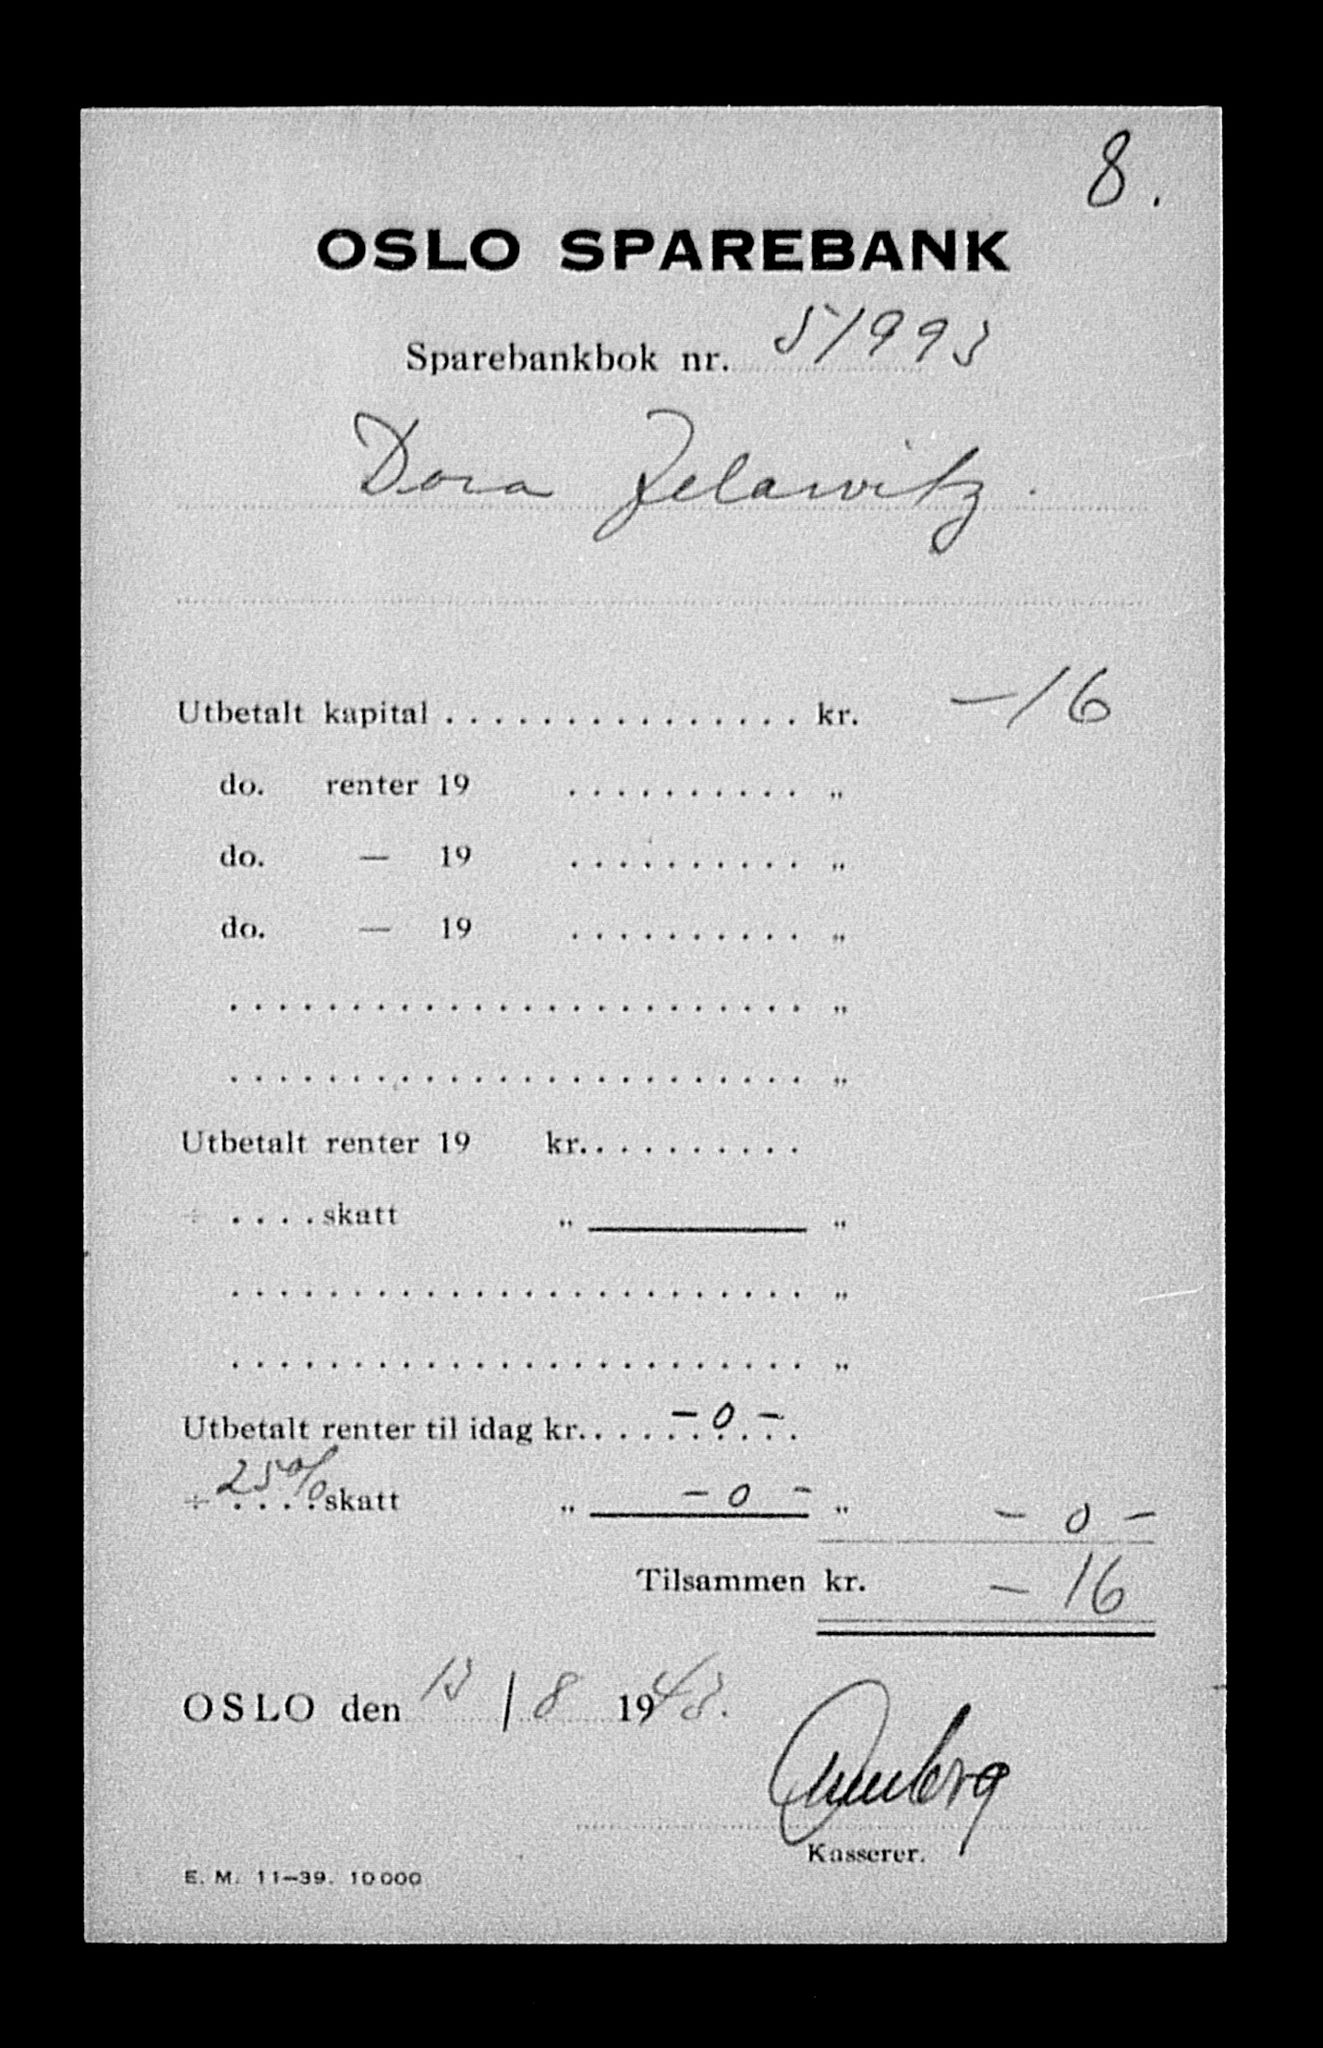 8.
OSLO SPAREBANK
Sparebankbok nr. 51993
Dora Jelawitz.
Utbetalt kapital . . . . . . . . . . . . . . . kr. —16
do. renter 19 . . . . . . . . . . „
do. — 19 . . . . . . . . . . „
do. — 19 . . . . . . . . . . „
. . . . . . . . . . . . . . . . . . . . . . . . „
. . . . . . . . . . . . . . . . . . . . . . . . „
Utbetalt renter 19 kr. . . . . . . . . .
÷ . . . . skatt „ „
. . . . . . . . . . . . . . . . . . . . . . . . „
. . . . . . . . . . . . . . . . . . . . . . . . „
Utbetalt renter til idag kr. . . . . . . . . . — 0 —
÷ 25 % skatt „ — 0 — „ — 0 —
Tilsammen kr. — 16
OSLO den 13 / 8 1943.
Kasserer.
E. M. 11—39. 10000